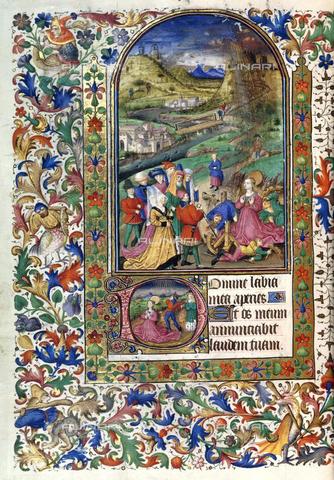 ALINARI
ALINARI
Domine labia
mea aperies
Et os meum
annunciabit
laudem tuam.